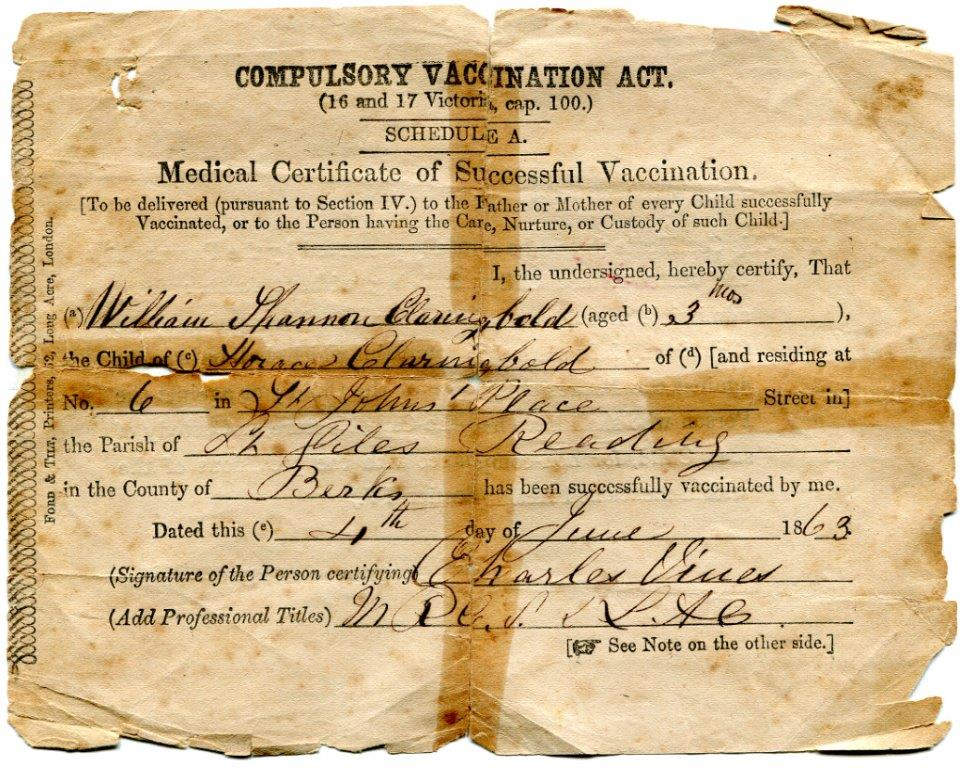 COMPULSORY VACCINATION ACT.
(16 and 17 Victoria, cap. 100.)
SCHEDULE A.
Medical Certificate of Successful Vaccination.
[To be delivered (pursuant to Section IV.) to the Father or Mother of every Child successfully
Vaccinated, or to the Person having the Care, Nurture, or Custody of such Child.]
I, the undersigned, hereby certify, That
(a) William Shannon Claringbold (aged (b) 3 mos ),
the Child of (c) Horace Claringbold of (d) [and residing at
No. 6 in St Johns Place Street in]
the Parish of St Giles Reading
in the County of Berks has been successfully vaccinated by me.
Dated this (e) 4th day of June 1863.
(Signature of the Person certifying) Charles Vines
(Add Professional Titles) M R C. S. & L. A C
[☞ See Note on the other side.]
FORD & TILT, Printers, 52, Long Acre, London.